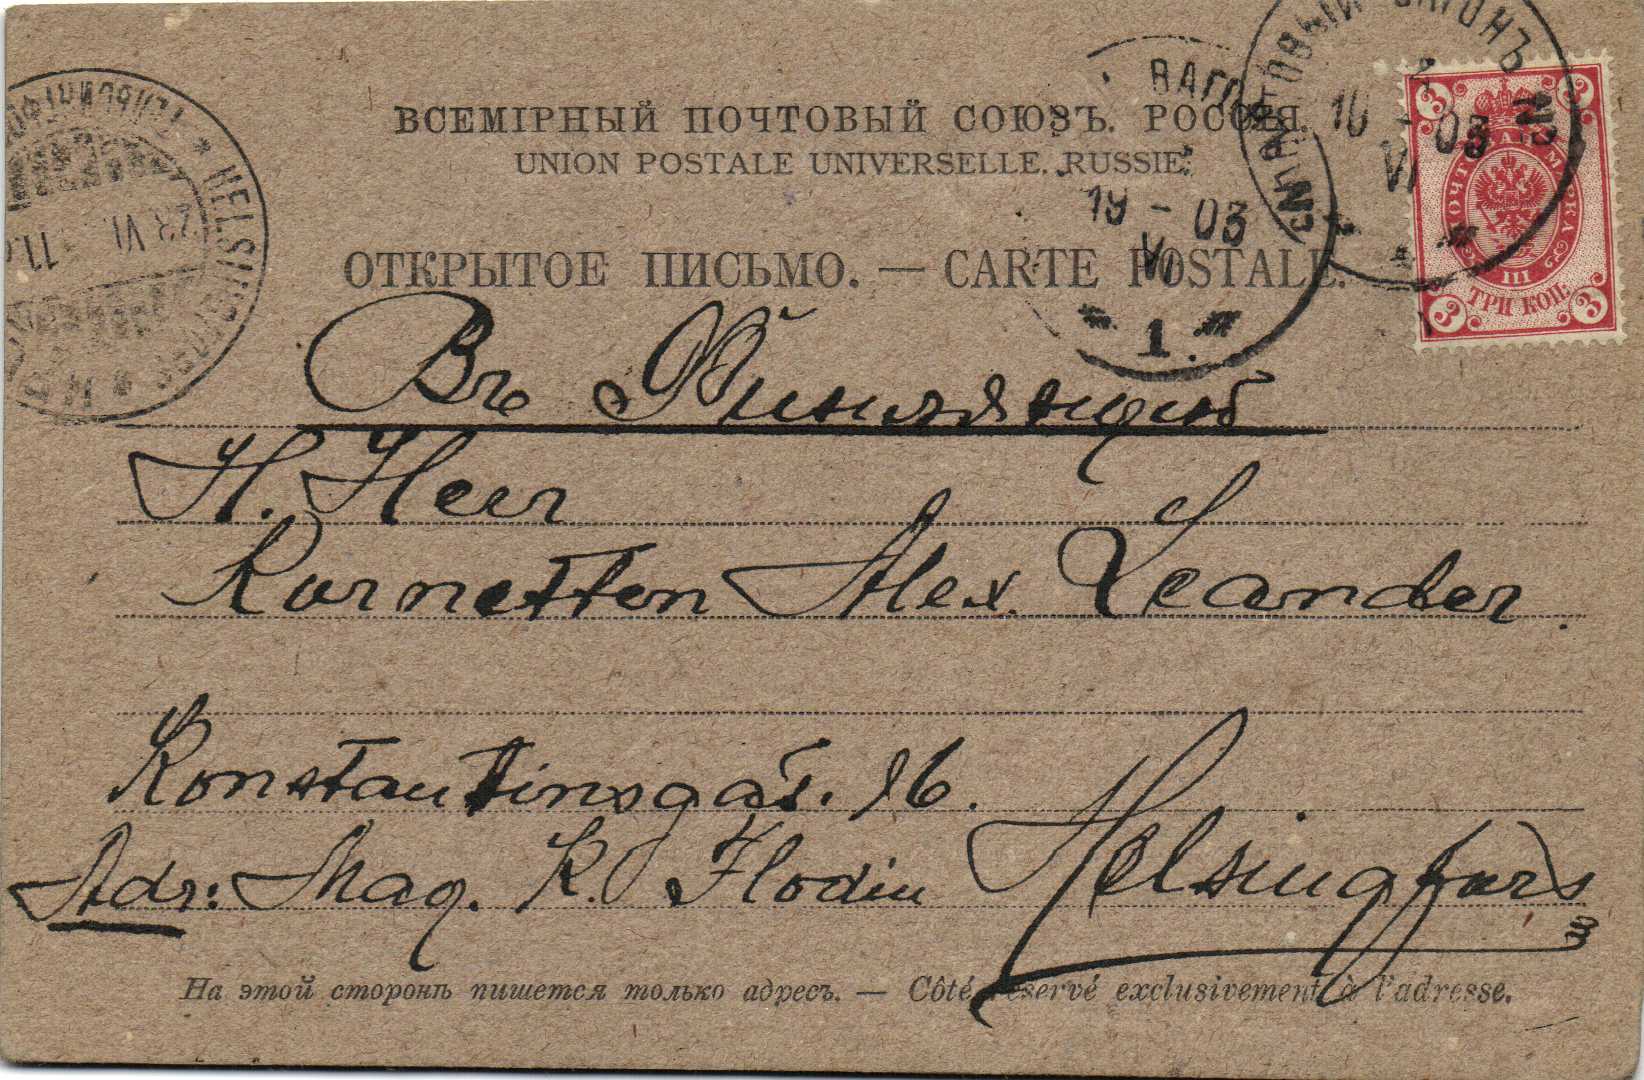 ВСЕМІРНЫЙ ПОЧТОВЫЙ СОЮЗЪ. РОССІЯ.
UNION POSTALE UNIVERSELLE. RUSSIE.
ОТКРЫТОЕ ПИСЬМО. — CARTE POSTALE.
ПОЧТОВЫЙ ВАГОНЪ
10 - 03
VI
ВАГО
19 - 03
VI
1.
3 3
ПОЧТОВАЯ МАРКА
III
ТРИ КОП.
3 3
HELSINGFORS
23.VI
11
Въ Финляндію
H. Herr
Kornetten Alex. Leander.
Konstantinsgat. 16.
Adr: Mag. K. Flodin Helsingfors
На этой сторонѣ пишется только адресъ. — Côté réservé exclusivement à l'adresse.